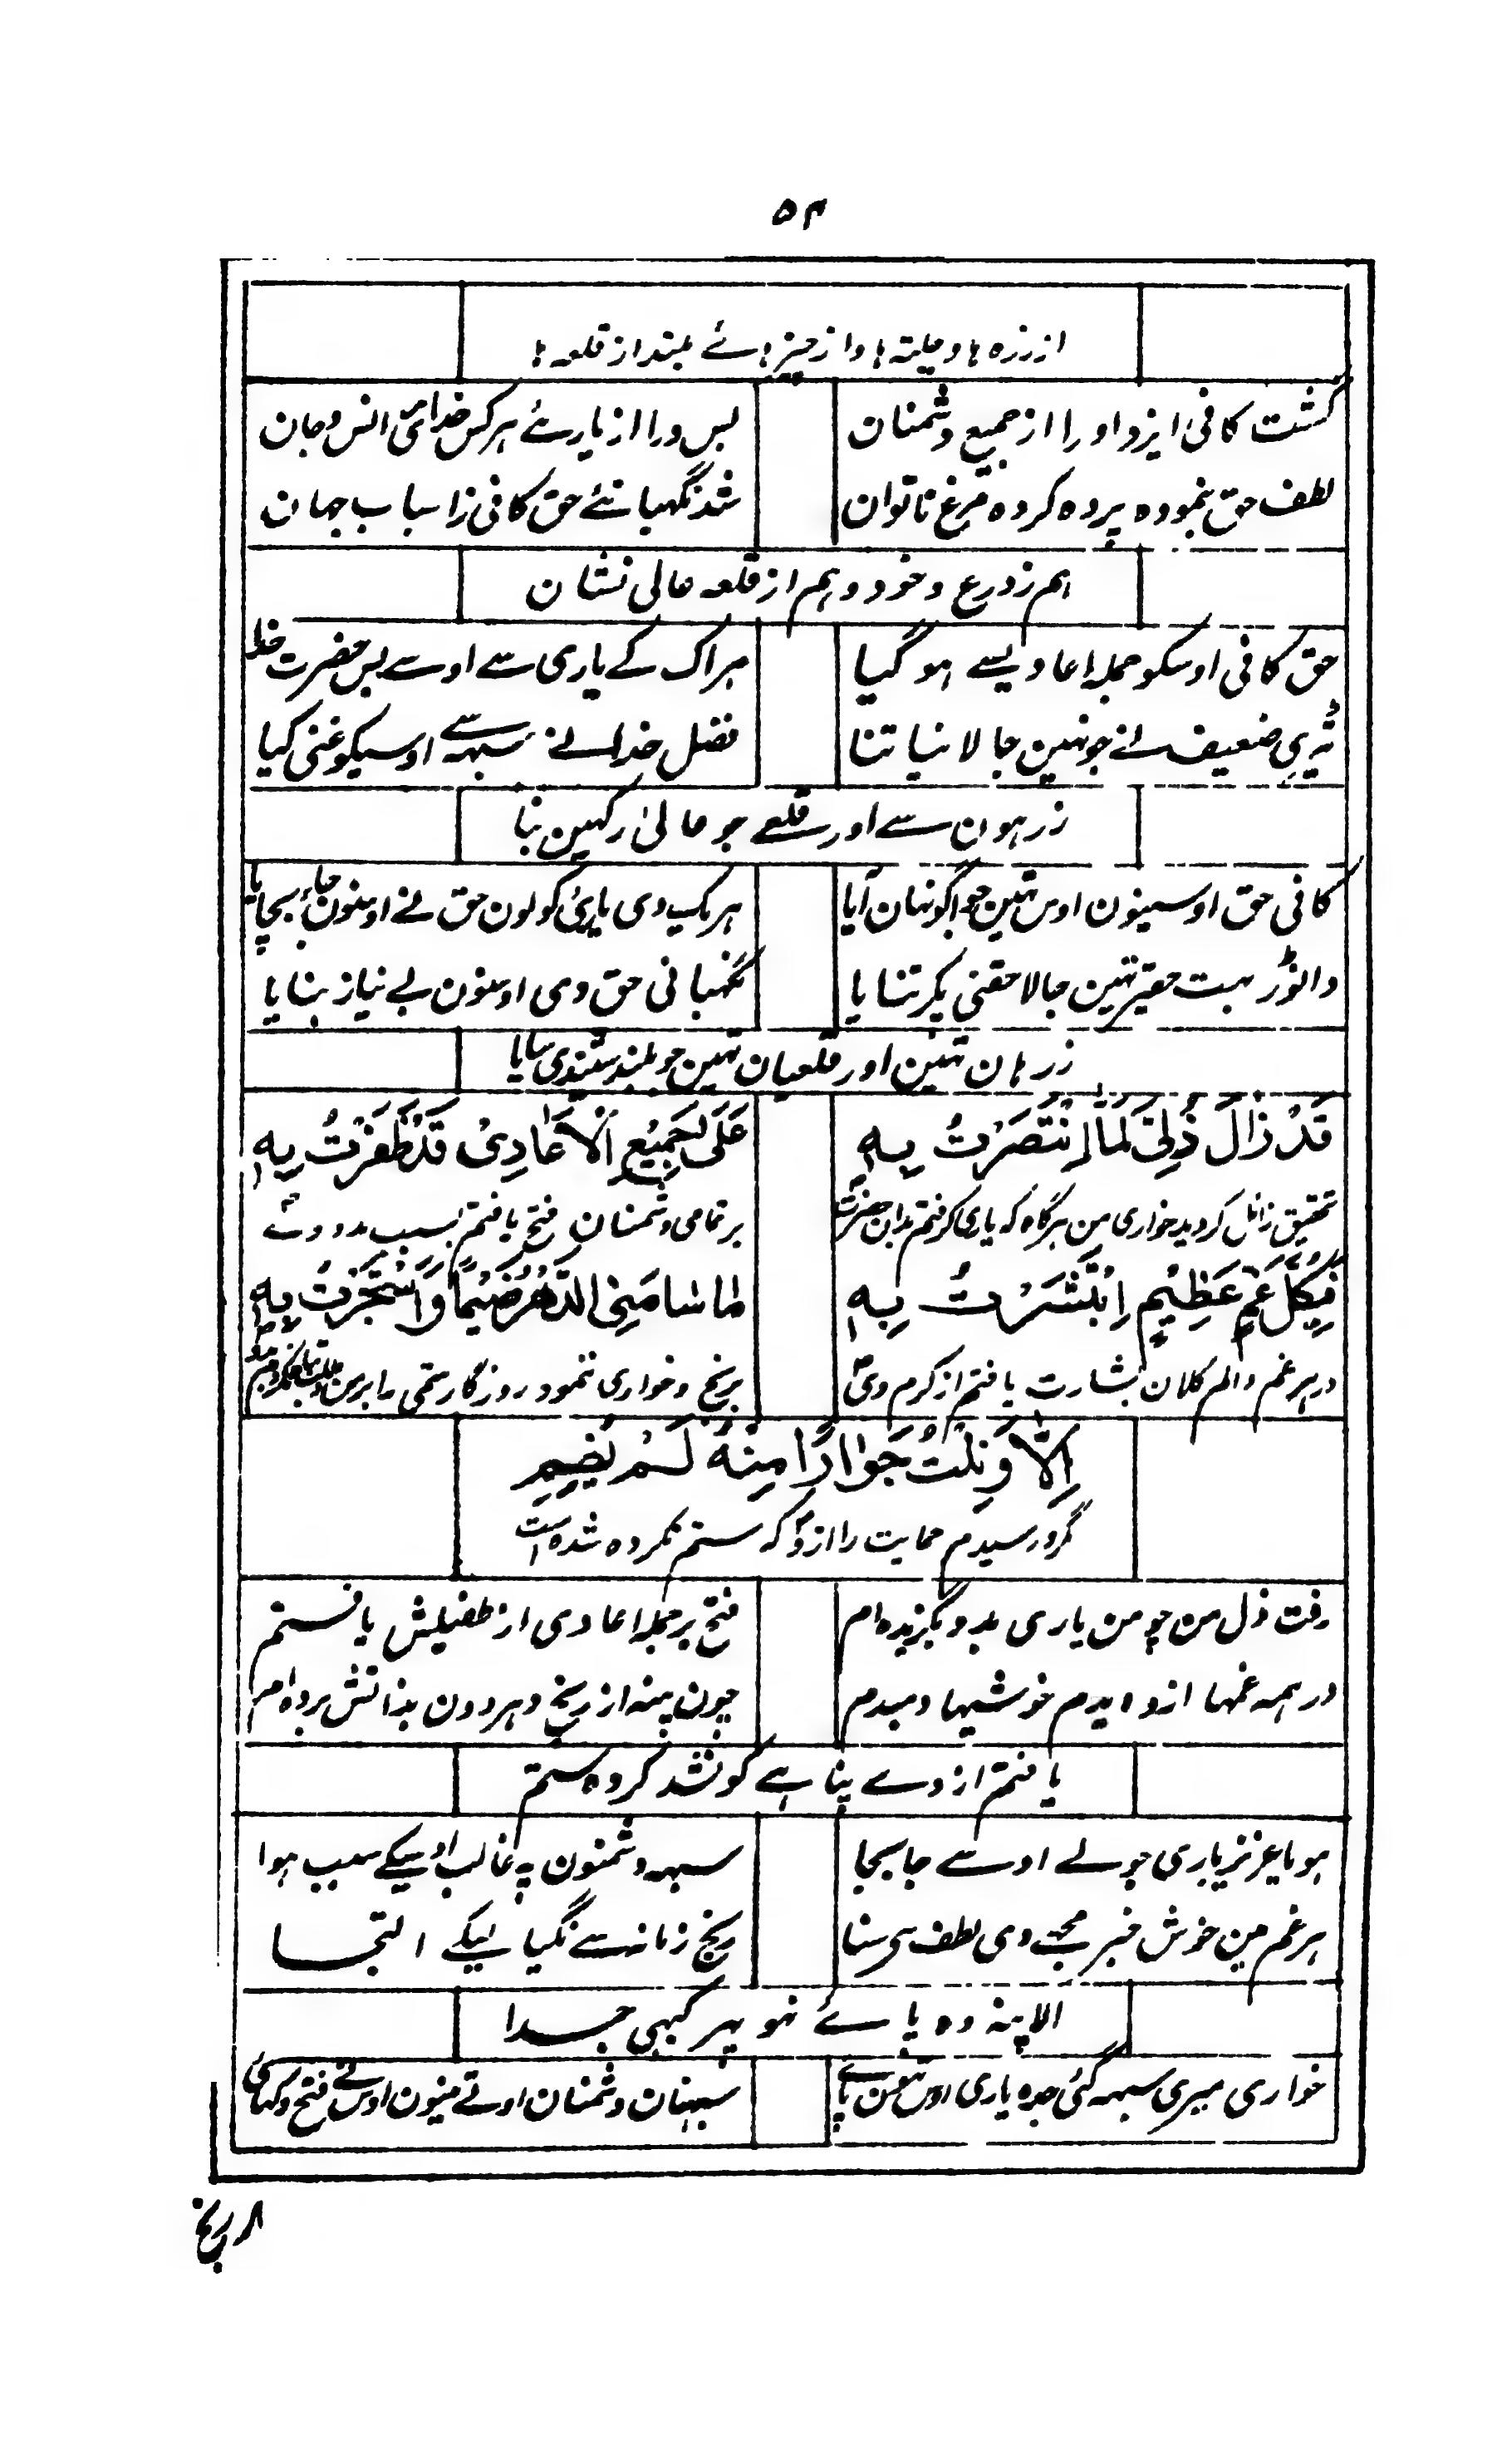 ۵۴
از زره ها و حلیته ها و از چیز هائے بلند از قلعه ها
گشت کافی ایزد او را از جمیع دشمنان
بس ورا از یارئے هر کس خدائی انس و جان
لطف حق بنموده پرده کرده مرغ ناتوان
شد نگهبانئے حق کافی ز اسباب جهان
هم ز درع و خود و هم از قلعه عالی نشان
حق کافی اوسکو جمله اعادیسے هو گیا
هر اک کے یاری سے اوسے بس حضرت خدا
ضعیف نے جونهین جالا نیا تنا
فضل خدا نے سبهه سے اوسیکو غنی کیا
زرهون سے اور قلعے جو عالی رکهین بنا
کافی حق اوسینون اوس تهین جو اگونهان آیا
هر یک دی یاری کولون حق نے اوسنون بچایا
والوڑ بهت حقیر تهین جالا حقنی پکر تنایا
نگهبانی حق دی اوسنون بے نیاز بنایا
زرهان تهین اور قلعیان تهین جو بلند
قَدْ زَالَ ذُلِّیْ لَمَّا انْتَصَرْتُ بِهٖ
عَلٰی جَمِیْعِ الْاَعَادِیْ قَدْ ظَفَرْتُ بِهٖ
تحقیق زائل گردید خواری من هرگاه که یاری گرفتم بدان حضرت
بر تمامی دشمنان فتح یافتم بسبب مدد وے
فِیْ کُلِّ غَمٍّ عَظِیْمٍ اِبْتَشَرْتُ بِهٖ
مَا سَامَنِی الدَّهْرُ ضَیْمًا وَاسْتَجَرْتُ بِهٖ
در هر غم و الم کلان بشارت یافتم از کرم وی
برنج و خواری ننمود روزگار ستمی را بر من
اِلَّا وَنِلْتُ جَوَارًا مِنْهُ لَمْ یُضَمِ
مگر رسیدم حمایت را از و که ستم نکرده شده است
رفت ذل من چو من یاری بدو بگزیده ام
فتح بر جمله اعادی از طفیلش یافتم
در همه غمها ازو دیدم خوشیها دمبدم
چون پنه از رنج دهر دون بذاتش برده ام
یافتم از وے پناهے کو نشد کرده ستم
هو یا عزیز یاری جو لے اوسے جابجا
سبهه دشمنون په غالب اوسیکے سبب هوا
هر غم مین خوش خبر مجهے دی لطف سی سنا
رنج زمانه سے نگیا لیکے التجا
الا پنه وه پائے نهو پهر کبهی جدا
خواری میری سبهه گئی جده یاری اوس تهین پائے
سبهنان دشمنان اوتے مینون اوسنے فتح دکهائی